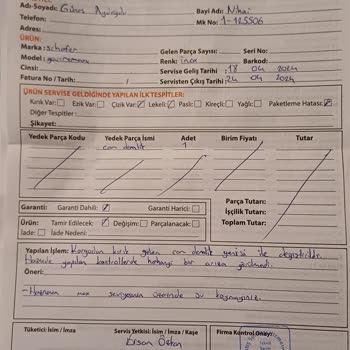 Adı-Soyadı: Güneş
Bayi Adı: Nihai
Telefon:
Mk No: 1-125506
Adres:
ÜRÜN:
Marka: schafer
Gelen Parça Sayısı:
Seri No:
Model:
Renk: inox
Barkod:
Cinsi:
Servise Geliş Tarihi: 18 04 2024
Fatura No / Tarih: /
Servisten Çıkış Tarihi: 24 04 2024
ÜRÜN SERVİSE GELDİĞİNDE YAPILAN İLK TESPİTLER:
Kırık Var: Ezik Var: Çizik Var: Lekeli: Paslı: Kireçli: Yağlı: Paketleme Hatası:
Diğer Tespitler:
Şikayet:
Yedek Parça Kodu Yedek Parça İsmi Adet Birim Fiyatı Tutar
cam demlik 1
Parça Tutarı:
Garanti: Garanti Dahili: Garanti Harici:
İşçilik Tutarı:
Ürün: Tamir Edilecek: Değişim: Parçalanacak:
Toplam Tutar:
İade: İade Nedeni:
Yapılan İşlem: Kargodan kırık gelen cam demlik yenisi ile değiştirildi.
Haznede yapılan kontrollerde herhangi bir arıza görülmedi.
Öneri:
Haznenin max seviyesinin üzerinde su koymayınız.
Tüketici: İsim / İmza
Servis Yetkisi: İsim / İmza / Kaşe
Firma Kontrol Onayı:
Ersan